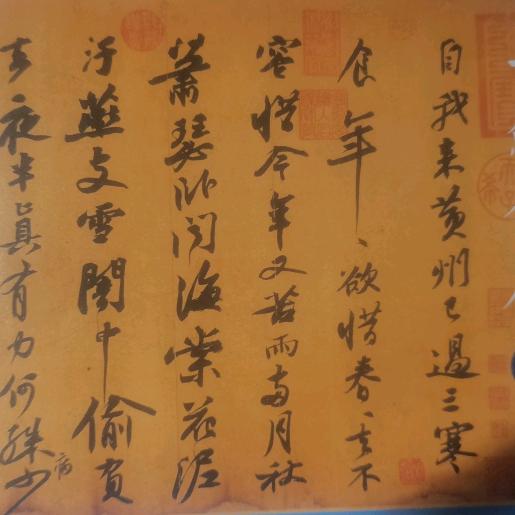 自我來黃州已過三寒
食年〻欲惜春〻去不
容惜今年又苦雨兩月秋
蕭瑟卧聞海棠花泥
汙燕支雪闇中偷負
去夜半真有力何殊病少